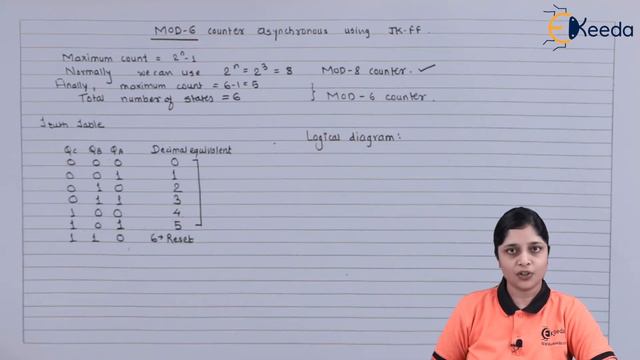 MOD-6 counter asynchronous using JK-FF.
Ekeeda
Maximum count = 2ⁿ-1
Normally we can use 2ⁿ = 2³ = 8 MOD-8 counter. ✓
Finally, maximum count = 6-1 = 5
Total number of states = 6 } MOD-6 counter.
Truth Table
Logical diagram:
QC QB QA Decimal equivalent
0 0 0 0
0 0 1 1
0 1 0 2
0 1 1 3
1 0 0 4
1 0 1 5
1 1 0 6→Reset
Ekeeda